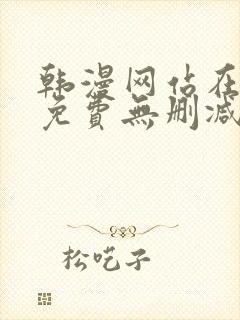 韩漫网站在
免費無删减
松吃子